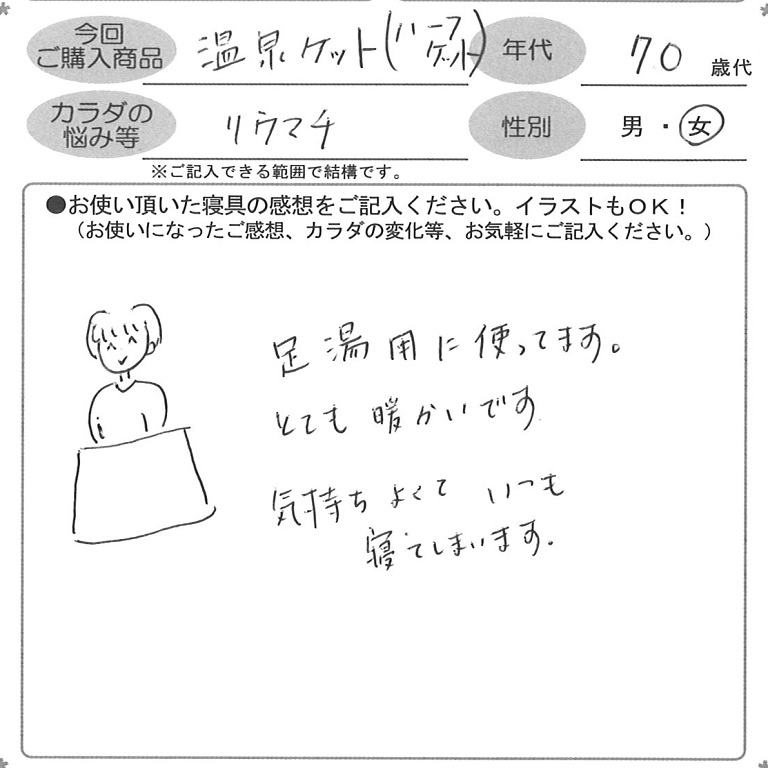 今回
ご購入商品 温泉ケット(ハーフケット) 年代 70 歳代
カラダの
悩み等 リウマチ 性別 男・女
※ご記入できる範囲で結構です。
●お使い頂いた寝具の感想をご記入ください。イラストもOK！
（お使いになったご感想、カラダの変化等、お気軽にご記入ください。）
足湯用に使ってます。
とても暖かいです
気持ちよくて いつも
寝てしまいます。